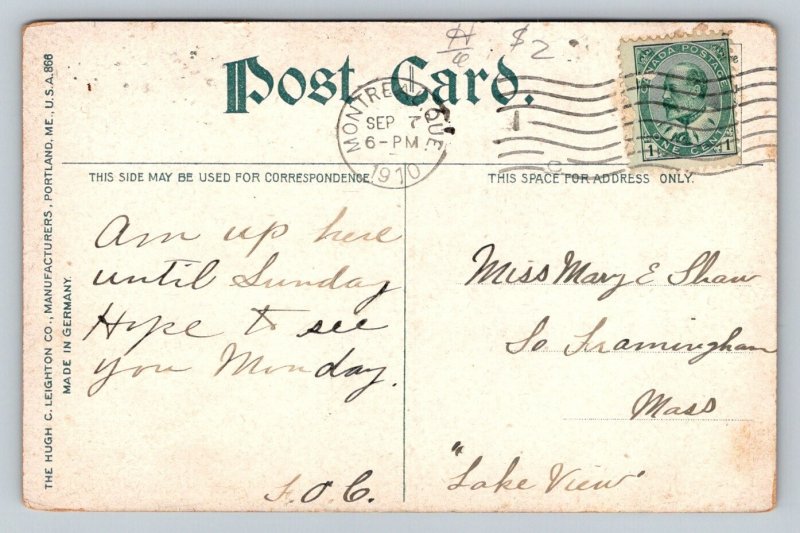 H/6 $2
Post Card.
MONTREAL QUE.
SEP 7
6-PM
1910
CANADA POSTAGE
1 ONE CENT 1
THIS SIDE MAY BE USED FOR CORRESPONDENCE
THIS SPACE FOR ADDRESS ONLY.
Am up here
until Sunday
Hope to see
you Monday.
F.O.C.
Miss Mary E Shaw
So Framingham
Mass
"Lake View"
THE HUGH C. LEIGHTON CO., MANUFACTURERS, PORTLAND, ME., U.S.A. 866
MADE IN GERMANY.